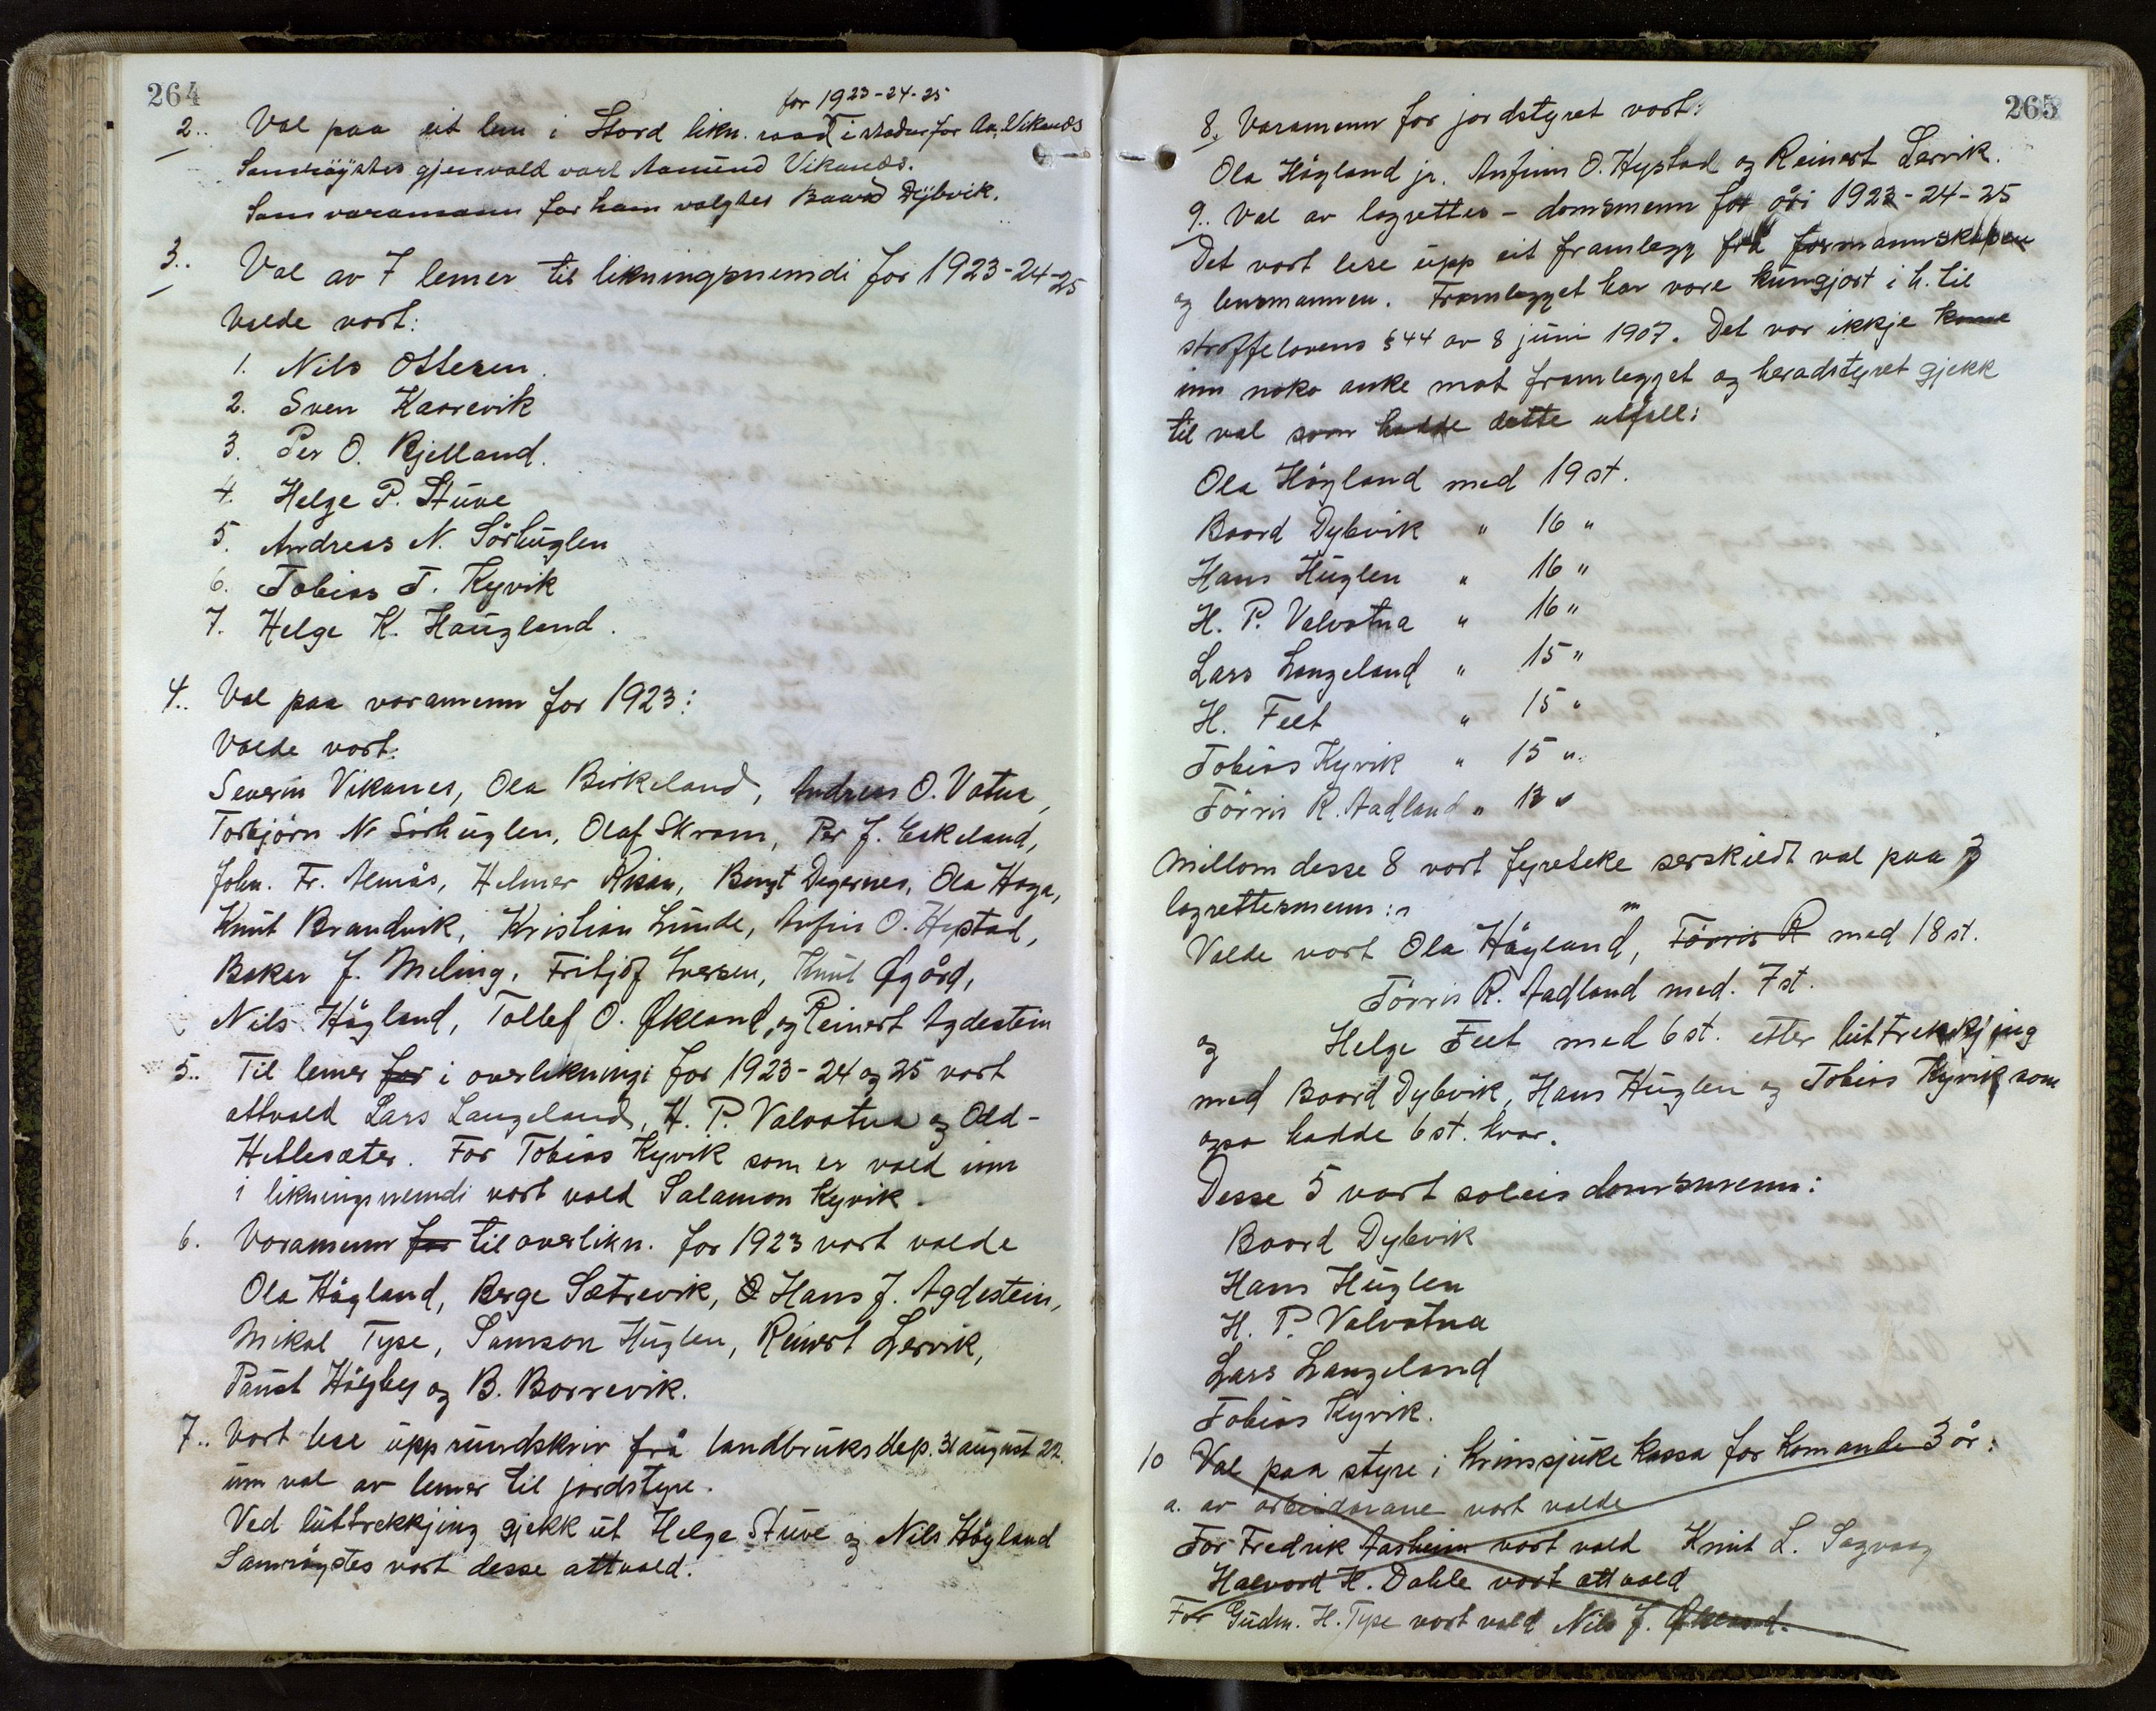 264
for 1923-24-25
2.. Val paa eit lem i Stord likn. raad i stadur for Am. Vikanes
Samröystes gjenvald vart Aamund Vikanes.
Som varamann for ham valgtes Baard Dybvik.
3.. Val av 7 lemer til likningsnemdi for 1923-24-25
Valde vart:
1. Nils Ottesen.
2. Sven Kaarevik
3. Per O. Kjelland.
4. Helge P. Stuve
5. Andreas N. Sörhuglen
6. Tobias T. Kyvik
7. Helge K. Haugland.
4.. Val paa varamenn for 1923:
Valde vart:
Severin Vikanes, Ola Birkeland, Andreas O. Vatna,
Torbjörn N. Sörhuglen, Olaf Skram, Per J. Eskeland,
Johs. Fr. Almås, Helmer Risan, Bengt Degernes, Ola Haga,
Knut Brandvik, Kristian Lunde, Anfin O. Hystad,
Baker J. Meling, Fritjof Iversen, Knut Øgård,
Nils Högland, Tollef O. Økland, og Reinert Agdestein
5.. Til lemer for i overlikningi for 1923-24 og 25 vart
attvald Lars Langeland, H. P. Valvatna og Odd-
Hillesæter. For Tobias Kyvik som er vald inn
i likningsnemdi vart vald Salamon Kyvik.
6. Varamenn for til overlikn. for 1923 vart valde
Ola Högland, Berge Sætrevik, O Hans J. Agdestein,
Mikal Tyse, Samson Huglen, Reinert Lervik,
Paust Högby og B. Borrevik.
7.. Vart lese upp rundskriv frå landbruksdep. 31 august 22.
um val av lemer til jordstyre.
Ved luttrekkjing gjekk ut Helge Stuve og Nils Högland
Samröystes vart desse attvald.
265
8. Varamenn for jordstyret vart:
Ola Högland jr. Anfinn O. Hystad og Reinert Lervik.
9.. Val av lagrettes - domsmenn for åri 1923-24-25
Det vart lese upp eit framlegg frå formannskapen
og lensmannen. Framlegget har vore kungjort i h. til
straffelovens § 44 av 8 juni 1907. Det var ikkje kome
inn noko anke mot framlegget og heradstyret gjekk
til val som hadde dette utfall:
Ola Högland med 19 st.
Baard Dybvik " 16 "
Hans Huglen " 16 "
H. P. Valvatna " 16 "
Lars Langeland " 15 "
H. Feet " 15 "
Tobias Kyvik " 15 "
Törris R. Aadland " 13 "
Millom desse 8 vart fyreteke serskildt val paa 3
lagrettesmenn:
Valde vart Ola Högland, Törris R med 18 st.
Törris R. Aadland med. 7 st.
og Helge Feet med 6 st. etter luttrekkjing
med Baard Dybvik, Hans Huglen og Tobias Kyvik som
ogso hadde 6 st. kvar.
Desse 5 vart soleis domsmenn:
Baard Dybvik
Hans Huglen
H. P. Valvatna
Lars Langeland
Tobias Kyvik.
10 Val paa styre i Krinssjuke kassa for komande 3 år:
a. av arbeidarane vart valde
For Fredrik Aasheim vart vald Knut L. Sagvaag
Halvard H. Dahle vart attvald
For Gudm. H. Tyse vart vald Nils J. Økland.